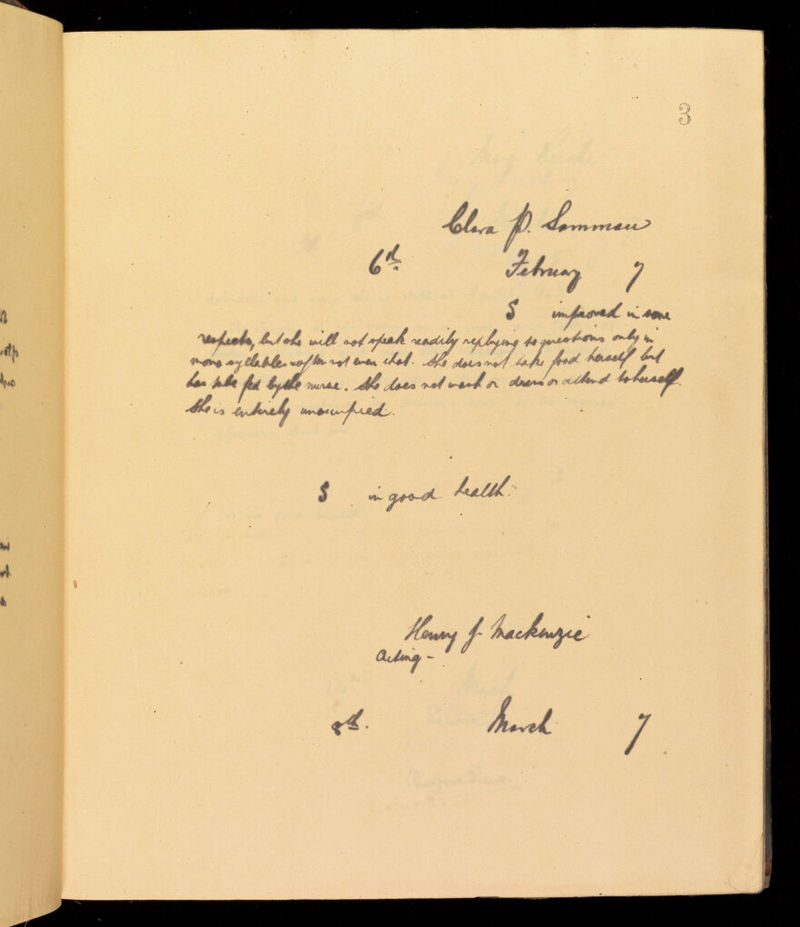 3
Clara P.
6th. February 7
S improved in some
respects, but she will not speak readily replying to questions only in
monosyllables & often not even that. She does not take food herself but
has to be fed by the nurse. She does not work or dress or attend to herself.
She is entirely unoccupied.
S in good health.
Henry J. Mackenzie
Acting -
8th. March 7